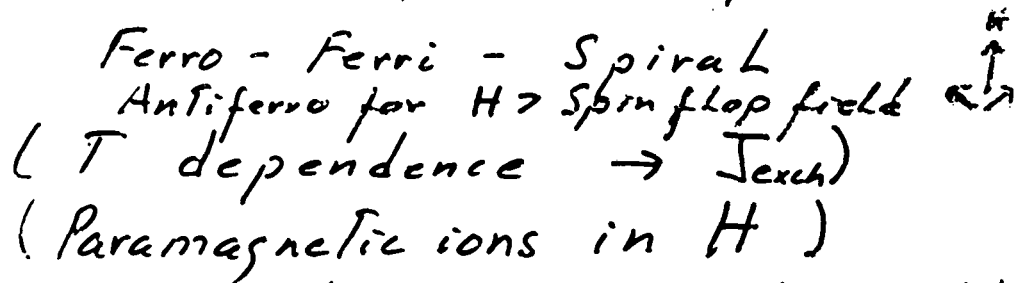 Ferro - Ferri - Spiral
Antiferro for H > Spin flop field
( T dependence → Jexch)
( Paramagnetic ions in H )